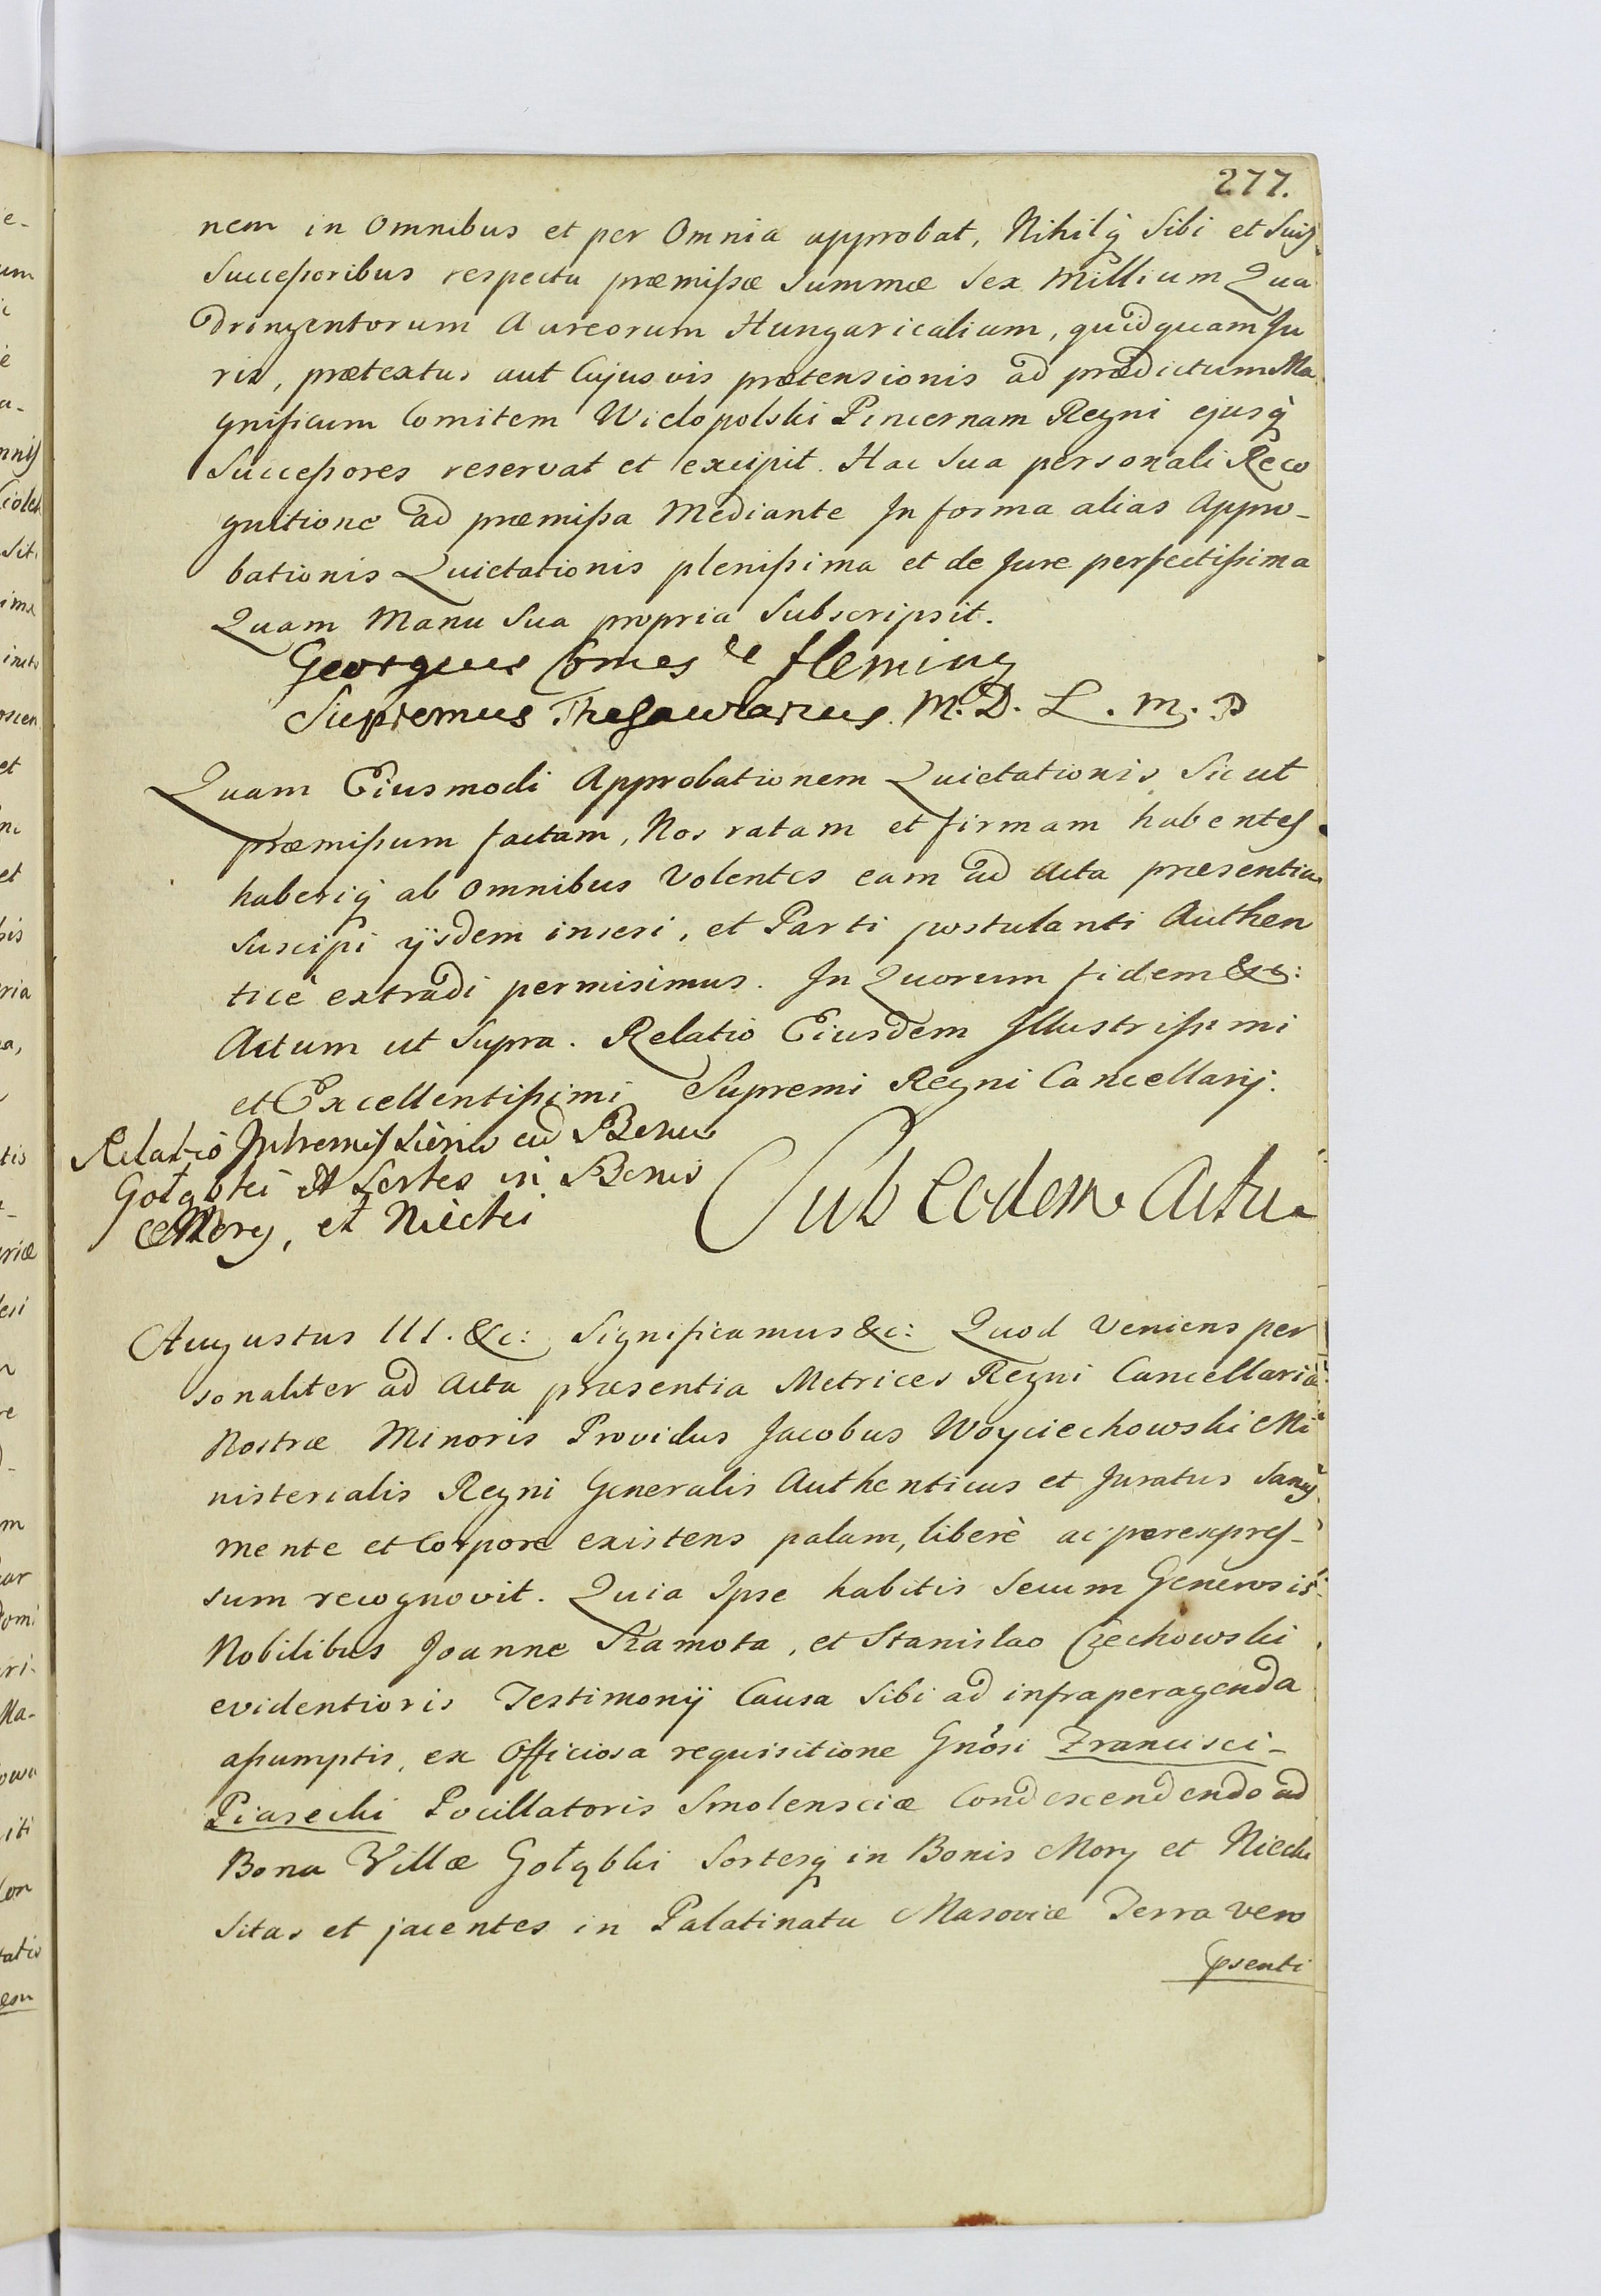 277.
nem in Omnibus et per Omnia approbat, Nihilq̀ Sibi et Suis
Successoribus respectu præmissæ Summæ Sex Millium Qua
dringentorum Aureorum Hungaricalium, quidquam Ju
ris, prætextus aut Cujusvis prætensionis ad prædictum Ma
gnificum Comitem Wielopolski Pincernam Regni ejusq̀
Successores reservat et excipit. Hac Sua personali Reco
gnitione ad præmissa Mediante In forma alias Appro-
bationis Quietationis plenissima et de Jure perfectissima
Quam Manu Sua propria Subscripsit.
Georgius Comes de Fleming
Supremus Thesaurarius M. D. L. m. p
Quam Eiusmodi Approbationem Quietationis Sicut
præmissum factam, Nos ratam et firmam habentes
haberiq̀ ab Omnibus Volentes eam ad Acta præsentia
Suscipi ijsdem inseri, et Parti postulanti Authen
ticè extradi permisimus. In Quorum fidem &c:
Actum ut Supra. Relatio Eiusdem Illustrissimi
et Excellentissimi Supremi Regni Cancellarij.
Relatio Intromissionis ad Bona
Gołąbki et Sortes in Bonis
Mory, et Niecki
Sub Eodem Actu
Augustus III. &c: Significamus &c: Quod Veniens per
sonaliter ad Acta præsentia Metrices Regni Cancellariæ
Nostræ Minoris Providus Jacobus Woyciechowski Mi
nisterialis Regni Generalis Authenticus et Juratus Sanus
mente et Corpore existens palam, liberè ac per expres-
sum recognovit. Quia Ipse habitis Secum Generosis
Nobilibus Joanne Szamota, et Stanislao Czechowski
evidentioris Testimonij Causa Sibi ad infra peragenda
assumptis, ex Officiosa requisitione Gnősi Francisci-
Piasecki Pocillatoris Smolensciæ Condescendendo ad
Bona Villæ Gołąbki Sortesq̀ in Bonis Mory et Niecki
Sitas et jacentes in Palatinatu Masoviæ Terra vero
psenti